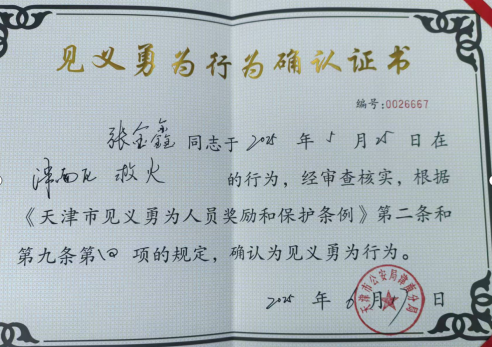 见义勇为行为确认证书
编号:0026667
张宝鑫 同志于 2025 年 5 月 25 日在
救火 的行为，经审查核实，根据
《天津市见义勇为人员奖励和保护条例》第二条和
第九条第 四 项的规定，确认为见义勇为行为。
2025 年 6 月 日
天津市公安局津南分局